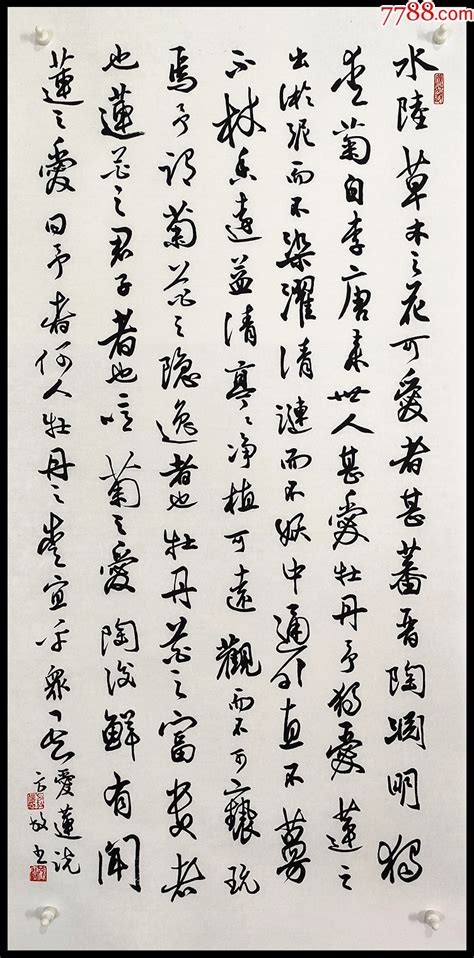 7788.com
水陸草木之花可愛者甚蕃晉陶淵明獨
愛菊自李唐来世人甚愛牡丹予獨愛蓮之
出淤泥而不染濯清漣而不妖中通外直不蔓
不枝香遠益清亭〻净植可遠觀而不可褻玩
焉予謂菊花之隐逸者也牡丹花之富貴者
也蓮花之君子者也噫菊之愛陶後鮮有聞
蓮之愛同予者何人牡丹之愛宜乎衆矣
愛蓮说
书